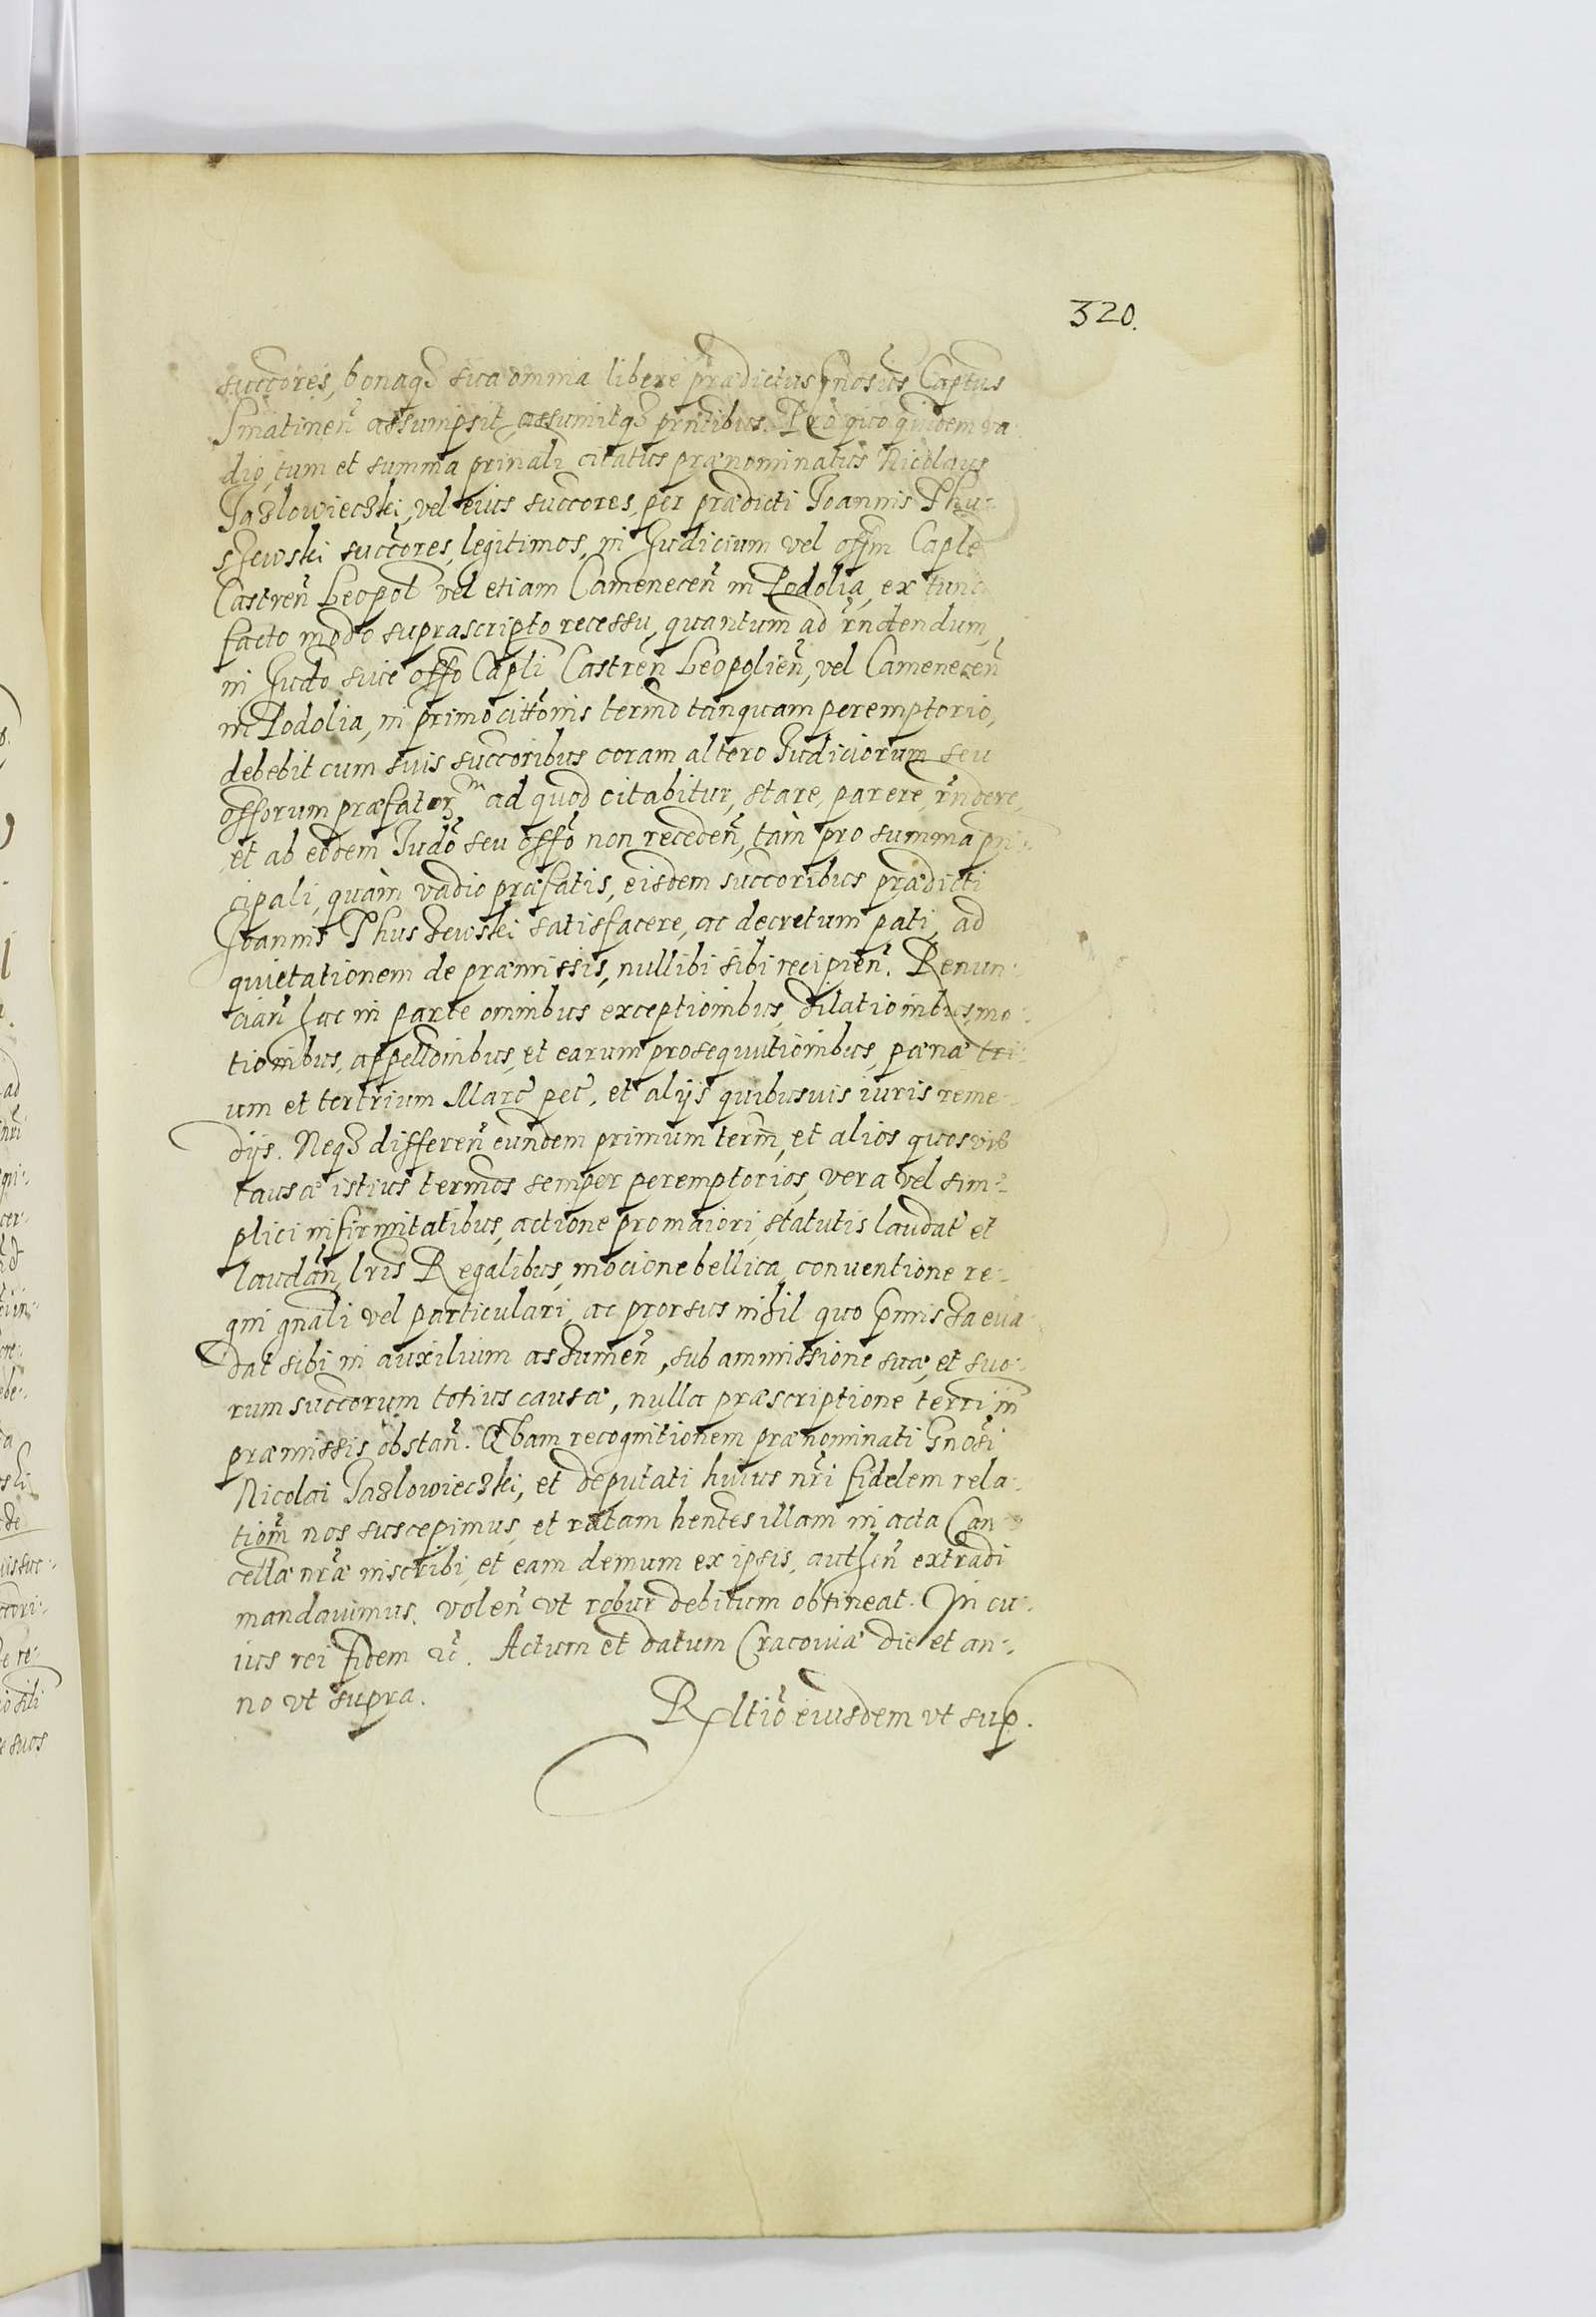 320.
succores, bonaqȝ sua omnia libere prædictus gnosus Captus
Sniatinen̄ assumpsit, assumitqȝ prntibus. Pro quo quidem va
dio, tum et summa prinali citatus prænominatus Nicolaus
Jazlowieczki, vel eius succores, per prædicti Joannis Thu-
szewski succores, legitimos, in Judicium vel offm Caple
Castren̄ Leopol vel etiam Camenecen̄ in Podolia, ex tunc
facto modo suprascripto recessu, quantum ad rn̄dendum,
in Judo siue offo Capli Castren̄ Leopolien̄, vel Camenecen̄
in Podolia, in primo citt̄onis termo tanquam peremptorio,
debebit cum suis succoribus coram altero Judiciorum seu
offorum præfator ad quod citabitur, stare, parere, rn̄dere,
et ab eodem Judo seu offo non receden̄, tàm pro summa prin
cipali, quàm vadio præfatis, eisdem succoribus prædicti
Joannis Thuszewski satisfacere, ac decretum pati, ad
quietationem de præmissis, nullibi sibi recipien̄. Renun-
cian̄ hac in parte omnibus exceptionibus, dilationibus, mo-
tionibus, appellonibus, et earum prosequutionibus, pœnæ tri-
um et tertrium Marc̄ pec̄, et alijs quibusuis iuris reme-
dijs. Neqȝ differen̄ eundem primum term̄, et alios quosvis
causæ istius termos semper peremptorios, vera vel sim-
plici infirmitatibus, actione pro maiori, statutis laudat̄ et
laudan̄, lris Regalibus, mocione bellica, conuentione re-
gni gnali vel particulari, ac prorsus nihil quo præmissa eua-
dat sibi in auxilium assumen̄, sub ammissione suæ, et suo-
rum succorum totius causæ, nulla præscriptione terri in
præmissis obstan̄. Qbam recognitionem prænominati Gnosi
Nicolai Jazlowieczki, et deputati huius nri fidelem rela-
tiom nos suscepimus, et ratam hentes illam in acta Can
cellæ nræ inscribi, et eam demum ex ipsis, authen̄ extradi
mandauimus. volen̄ vt robur debitum obtineat. In cu-
ius rei fidem ꝛc̄. Actum et datum Cracouiæ die et an-
no vt supra.
Rltio eiusdem vt sup.